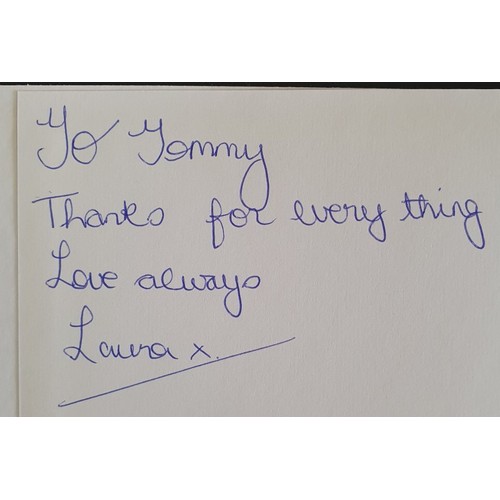 To Tommy
Thanks for every thing
Love always
Laura x.